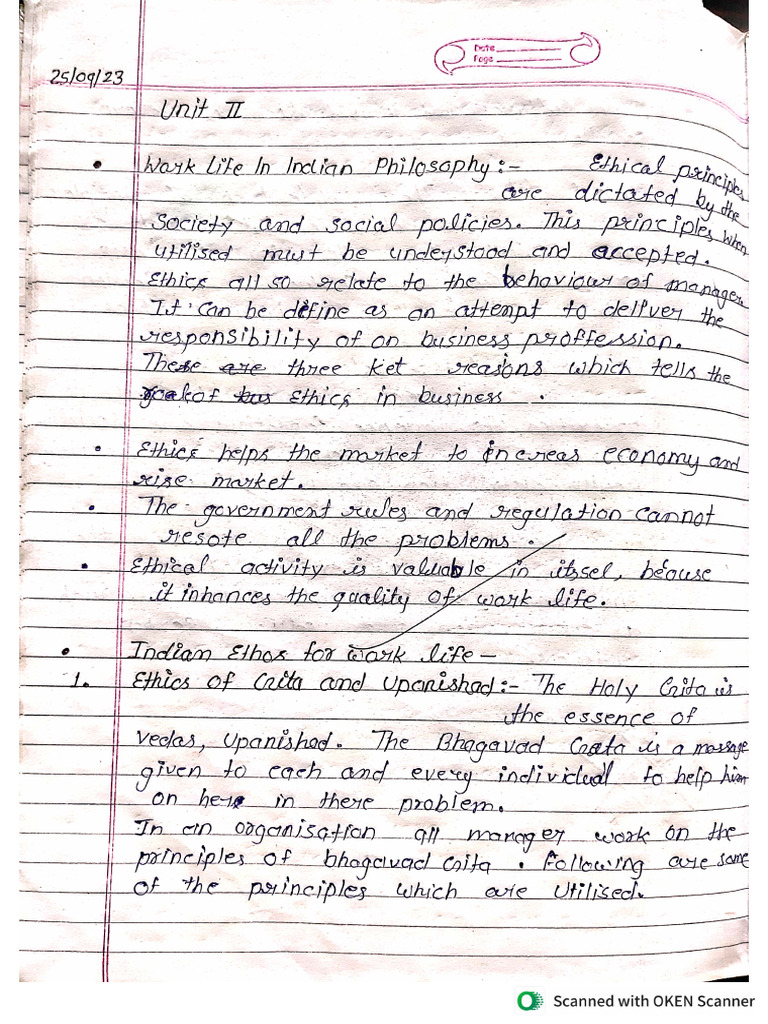 Date
Page
25/09/23
Unit II
• Work Life In Indian Philosophy:- Ethical principles
are dictated by the
society and social policies. This principles when
utilised must be understood and accepted.
Ethics all so relate to the behaviour of manager.
It can be define as an attempt to deliver the
responsibility of on business proffession.
These are three ket reasons which tells the
of Ethics in business .
• Ethics helps the market to increas economy and
rise market.
• The government rules and regulation cannot
resote all the problems .
• Ethical activity is valuable in itssel, becouse
it inhances the quality of work life.
• Indian Ethos for work life -
1. Ethics of Gita and Upanishad:- The Holy Gita is
the essence of
vedas, Upanishad. The Bhagavad Geeta is a massage
given to each and every individual to help him
on here in there problem.
In an organisation all manager work on the
principles of bhagavad Gita . Following are some
of the principles which are Utilised.
Scanned with OKEN Scanner